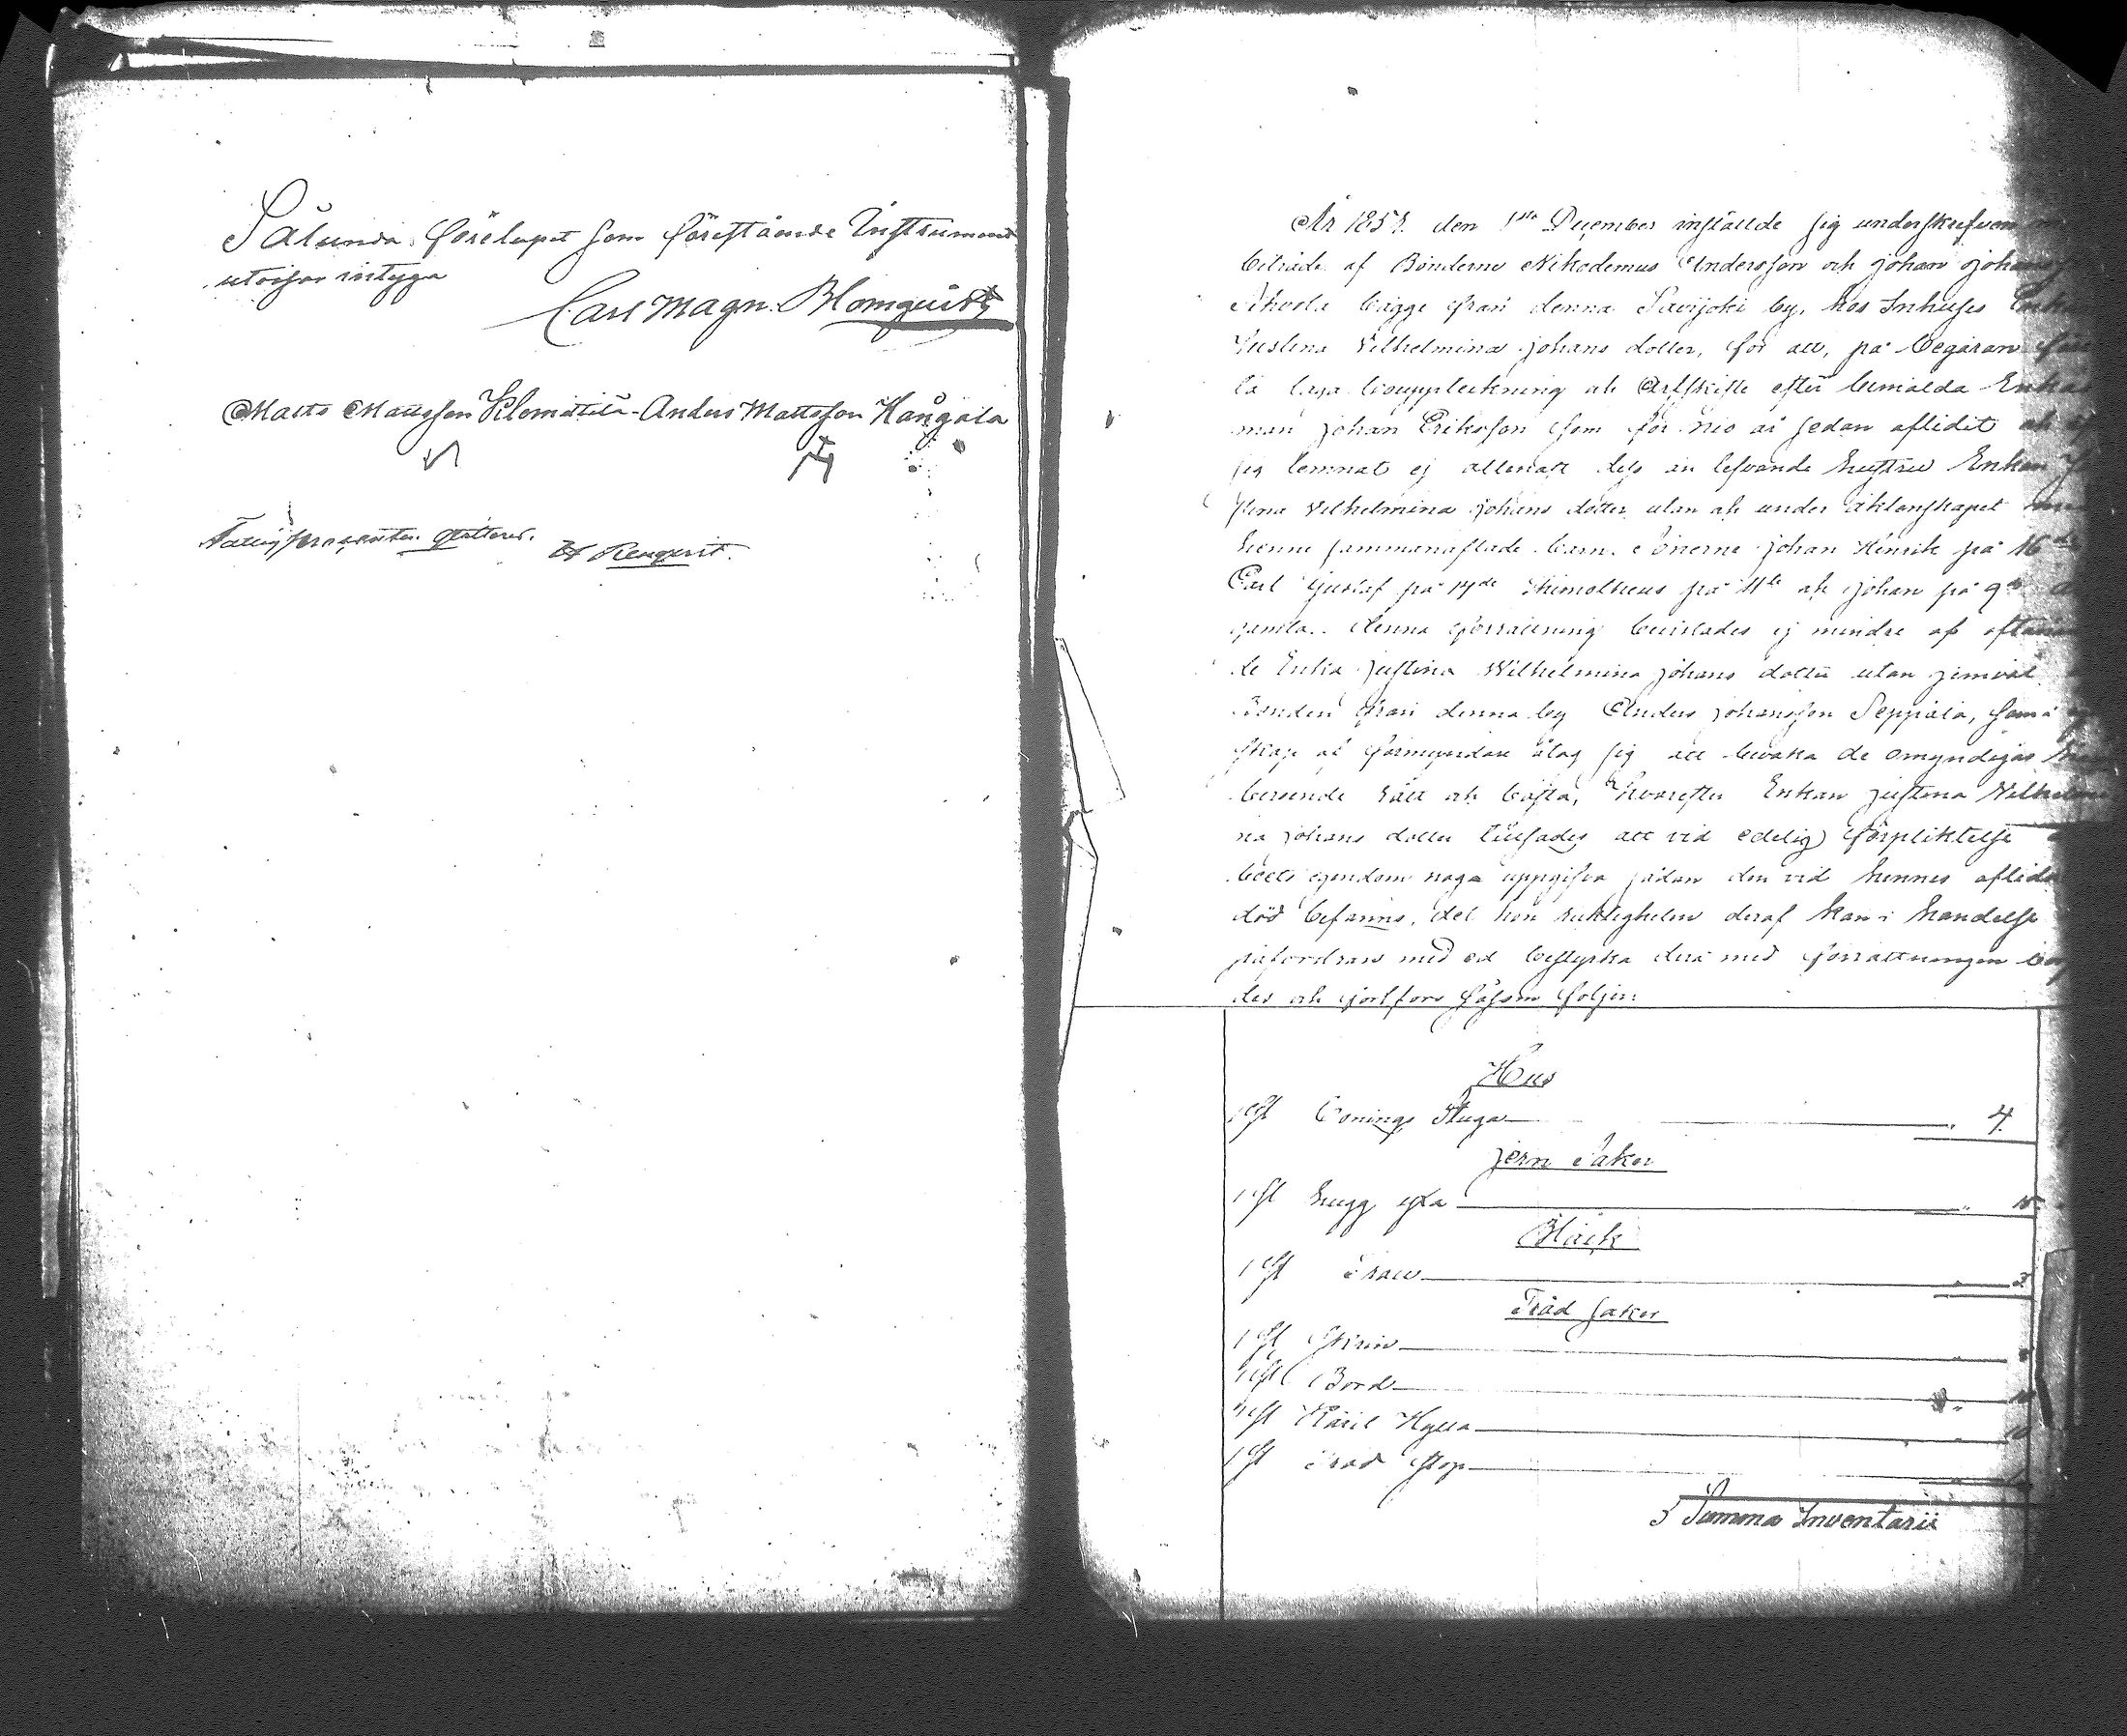 Sålunda förelupit som förestående Instrument
utvisar intyga
Carl Magn. Blomqvist
Matts Mattsson Klomåtila - Anders Mattsson Kångala
qvitteras.
År 1857. den 1sta December inställde sig underskrifven
biträde af Bönderne Nikodemus Andersson och Johan
bägge från denna Savijoki by, hos Inhyses
Justina Vilhelmina Johans dotter, för att, på begäran
laga bouppteckning och Arfskifte efter bemälda
man Johan Eriksson som för nio år sedan aflidit och
sig lemnat ej allenast dess än lefvande hustru Enkan
stina Vilhelmina Johans dotter utan och under äktenskapet
henne sammanaflade barn. Sönerne Johan Henrik på 16de
Carl Gustaf på 14de Thimotheus på 11te och Johan på 9de
gamla. denna förrättning bevistades ej mindre af
de Enka Justina Wilhelmina Johans dotter utan jemväl
Bonden från denna by Anders Johansson Seppälä, som i
skap af förmyndare åtog sig att bevaka de omyndigas
beroende rätt och bästa, hvarefter Enkan Justina
na Johans dotter tillsades att vid edelig förpliktelse
boets egendom noga uppgifva sådan den vid hennes
död befanns, det hon riktigheten deraf kan i händelse
påfordras med ed bestyrka derå med förrättningen
des och fortfors såsom följer:
Hus
1 st Bonings Stuga 4.
Jern Saker
1 st hugg yxa
Bläck
1 st
Träd saker
1 st skrin
1 st Bord
1 st Käril Hylla
1 st Träd stop
Summa Inventarii